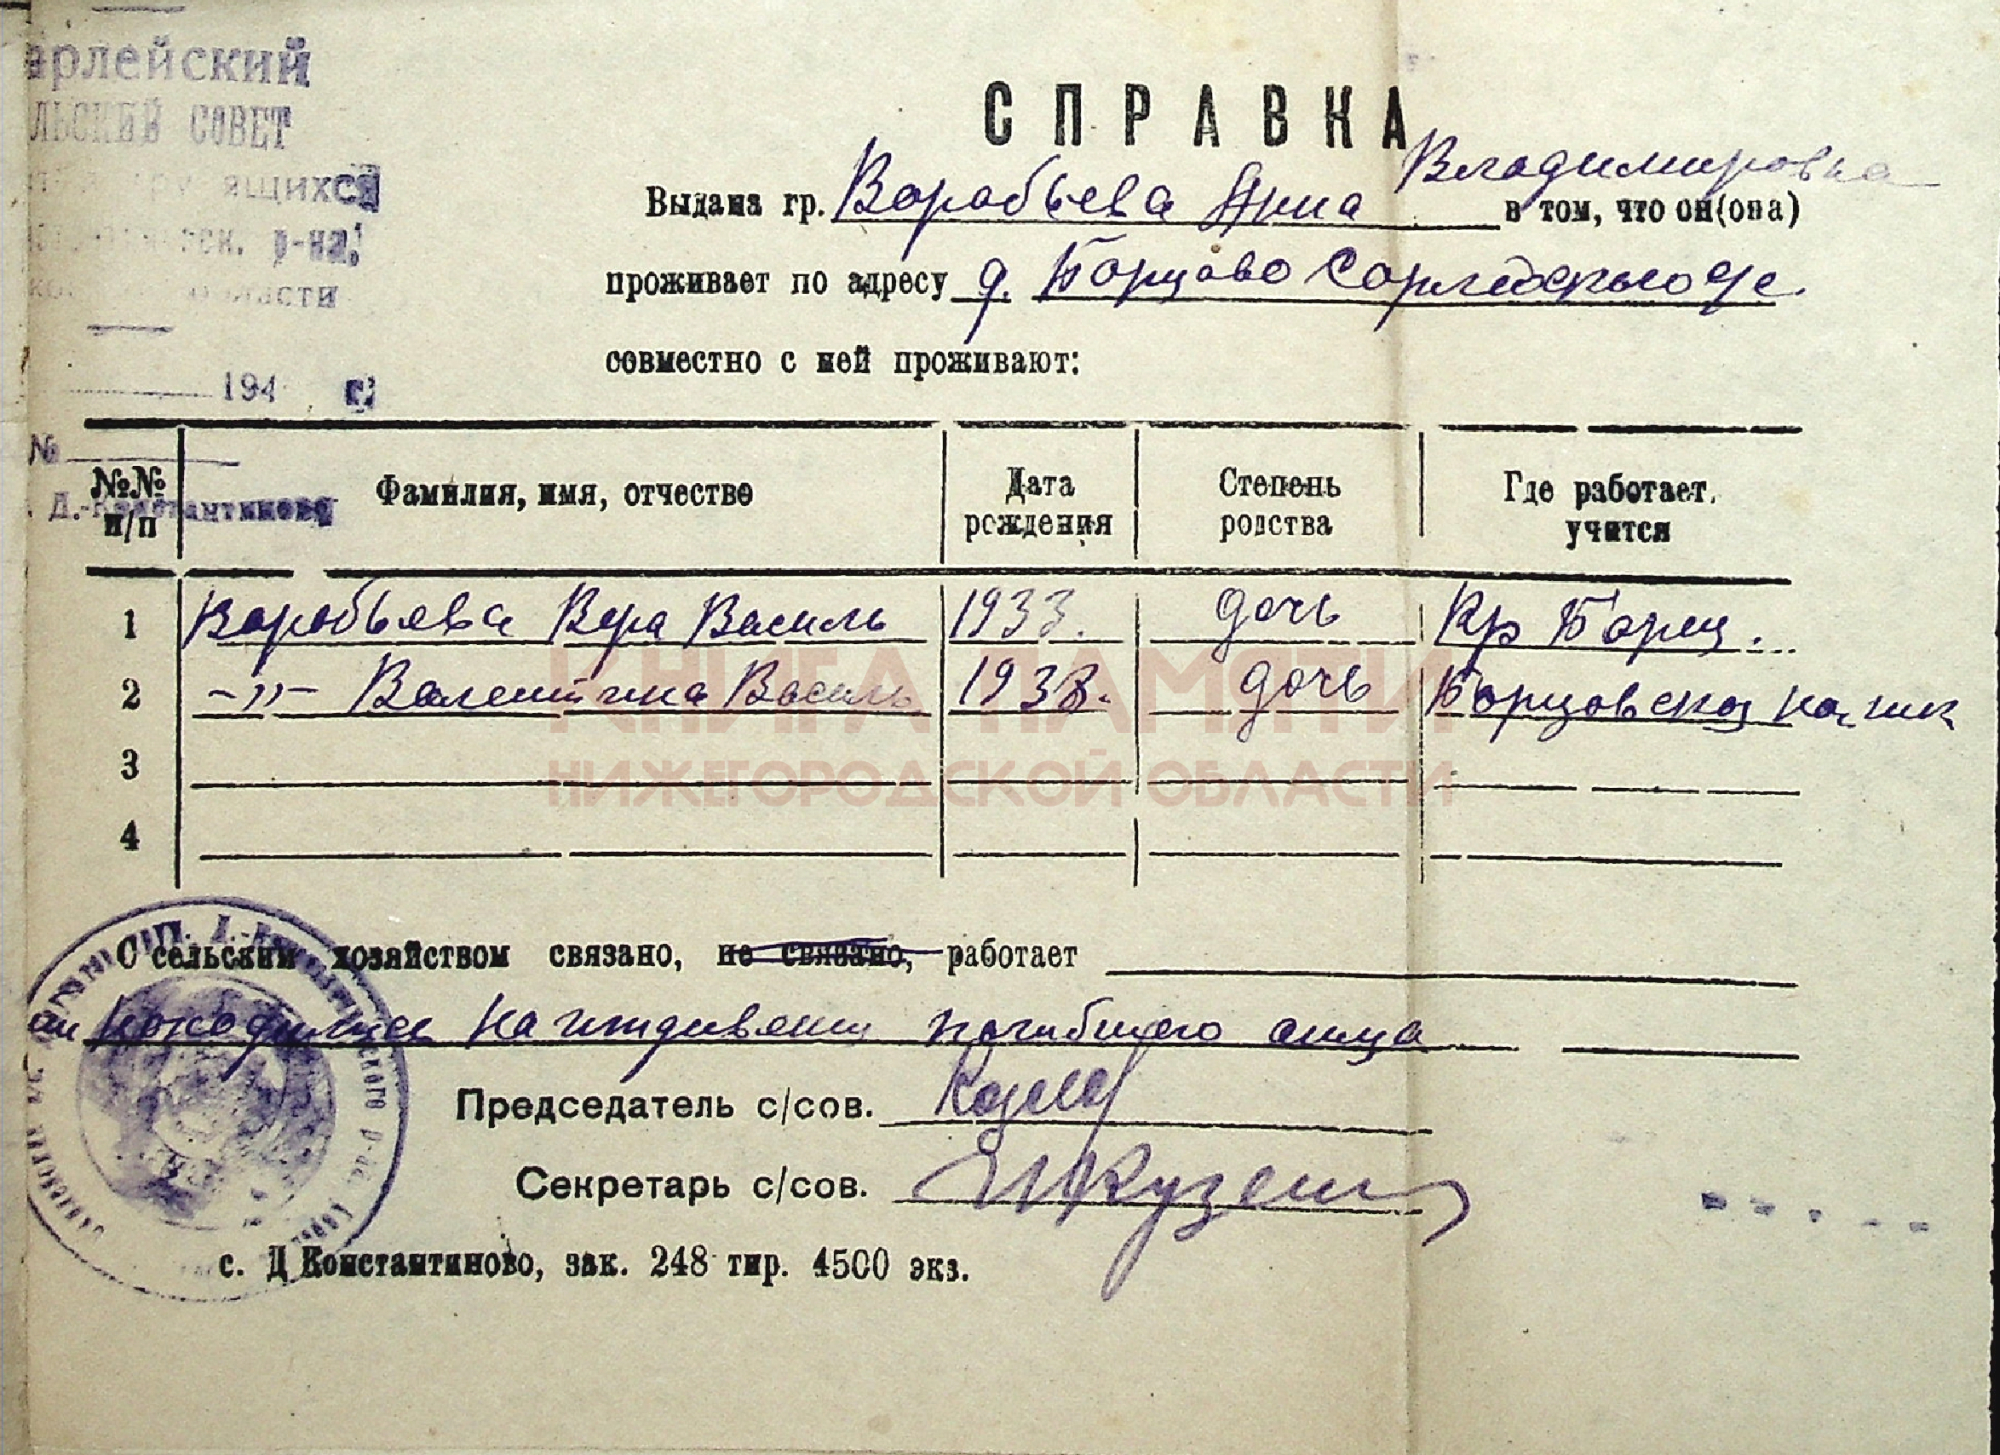 арлейский
льский СОВЕТ
ящихся
р-на,
области
194 г.
№
Д.-Константиново
СПРАВКА
Выдана гр. Воробьева Анна Владимировна в том, что он(она)
проживает по адресу д. Борцово Сарлейского с/с
совместно с ней проживают:
№№ п/п Фамилия, имя, отчество Дата рождения Степень родства Где работает, учится
1 Воробьева Вера Василь 1933. дочь Кр Борец.
2 -"- Валентина Василь 1938. дочь Борцовская
3
4
КНИГА ПАМЯТИ
НИЖЕГОРОДСКОЙ ОБЛАСТИ
С сельским хозяйством связано, не связано, работает
находились на иждивении погибшего отца
Председатель с/сов.
Секретарь с/сов.
с. Д Константиново, зак. 248 тир. 4500 экз.